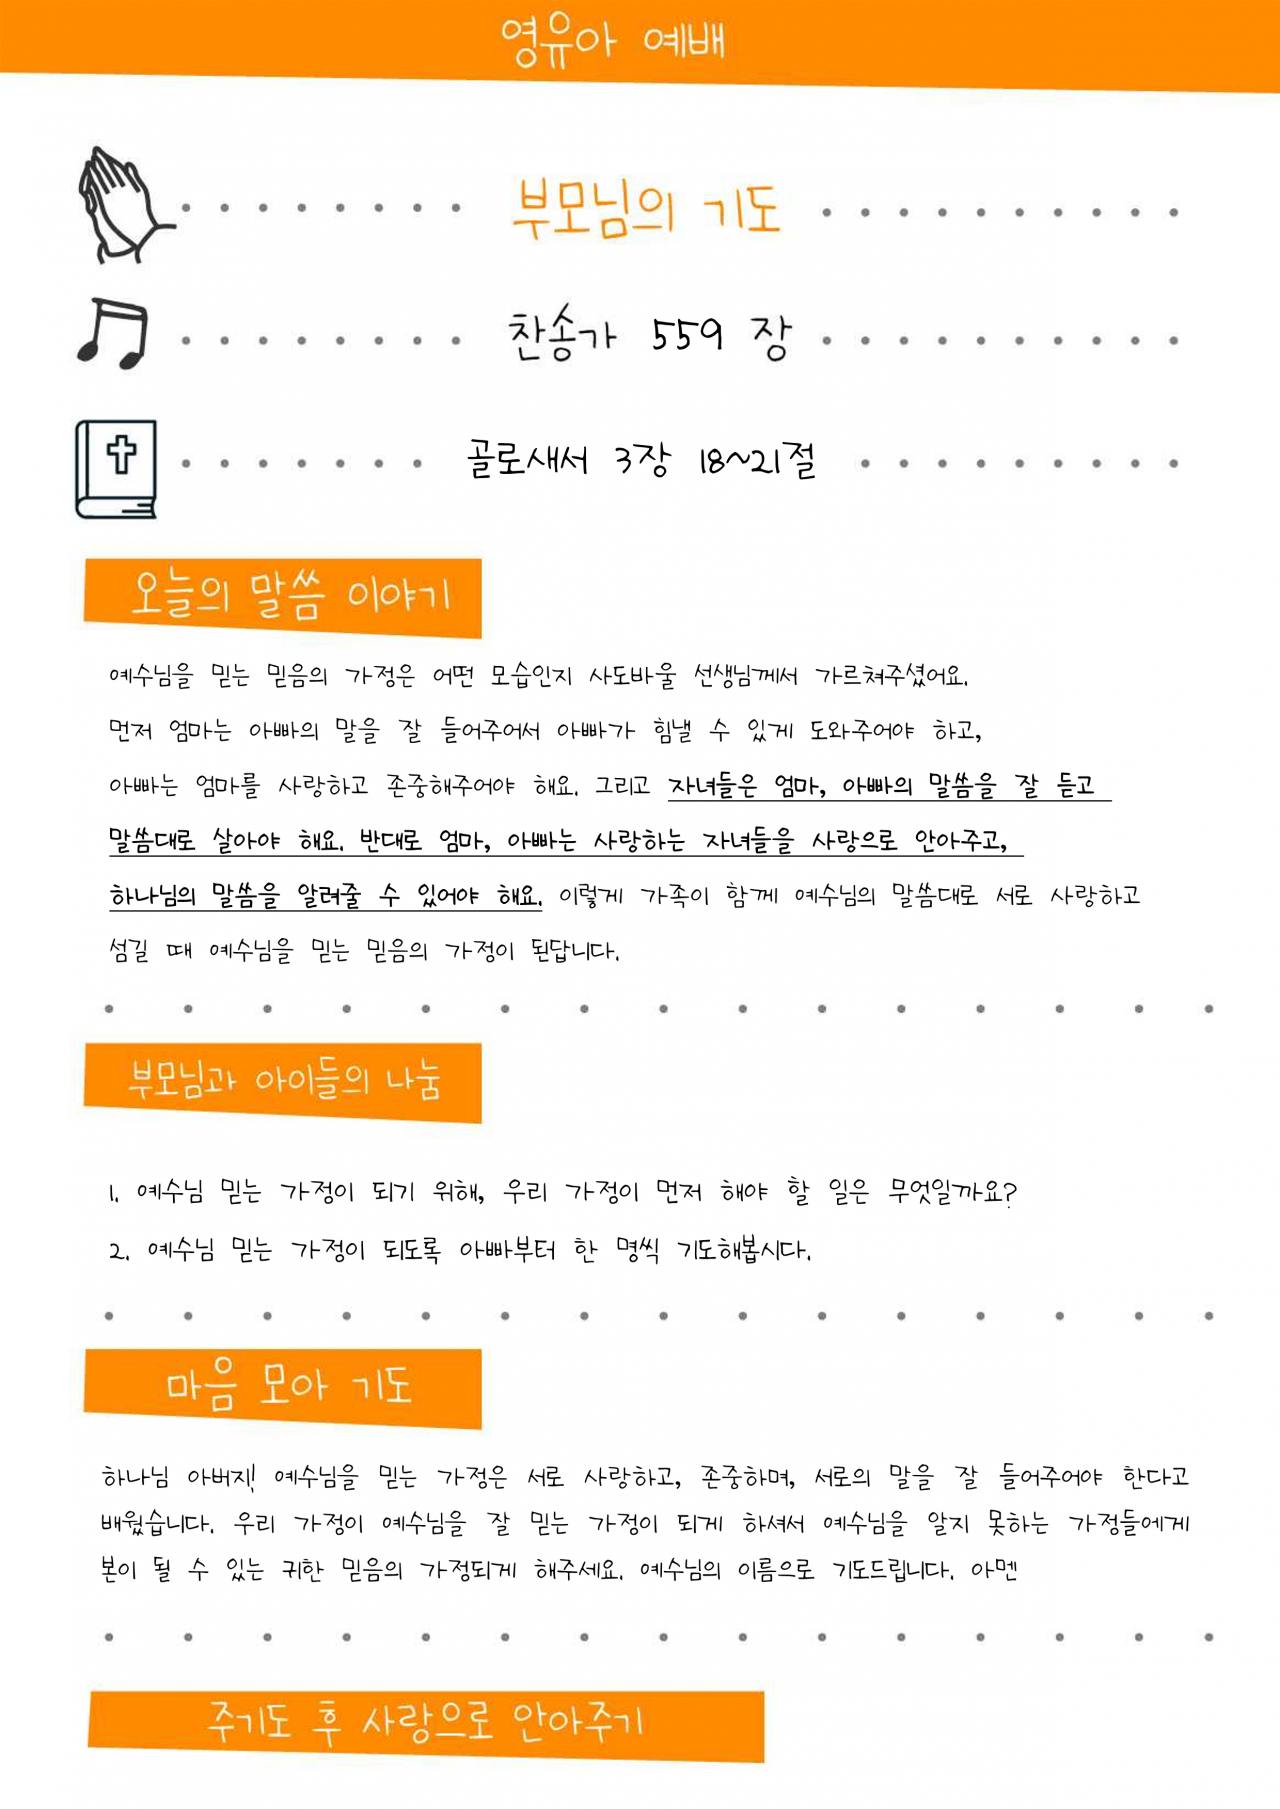 영유아 예배
부모님의 기도
찬송가 559 장
골로새서 3장 18~21절
오늘의 말씀 이야기
예수님을 믿는 믿음의 가정은 어떤 모습인지 사도바울 선생님께서 가르쳐주셨어요.
먼저 엄마는 아빠의 말을 잘 들어주어서 아빠가 힘낼 수 있게 도와주어야 하고,
아빠는 엄마를 사랑하고 존중해주어야 해요. 그리고 자녀들은 엄마, 아빠의 말씀을 잘 듣고
말씀대로 살아야 해요. 반대로 엄마, 아빠는 사랑하는 자녀들을 사랑으로 안아주고,
하나님의 말씀을 알려줄 수 있어야 해요. 이렇게 가족이 함께 예수님의 말씀대로 서로 사랑하고
섬길 때 예수님을 믿는 믿음의 가정이 된답니다.
부모님과 아이들의 나눔
1. 예수님 믿는 가정이 되기 위해, 우리 가정이 먼저 해야 할 일은 무엇일까요?
2. 예수님 믿는 가정이 되도록 아빠부터 한 명씩 기도해봅시다.
마음 모아 기도
하나님 아버지! 예수님을 믿는 가정은 서로 사랑하고, 존중하며, 서로의 말을 잘 들어주어야 한다고
배웠습니다. 우리 가정이 예수님을 잘 믿는 가정이 되게 하셔서 예수님을 알지 못하는 가정들에게
본이 될 수 있는 귀한 믿음의 가정되게 해주세요. 예수님의 이름으로 기도드립니다. 아멘
주기도 후 사랑으로 안아주기